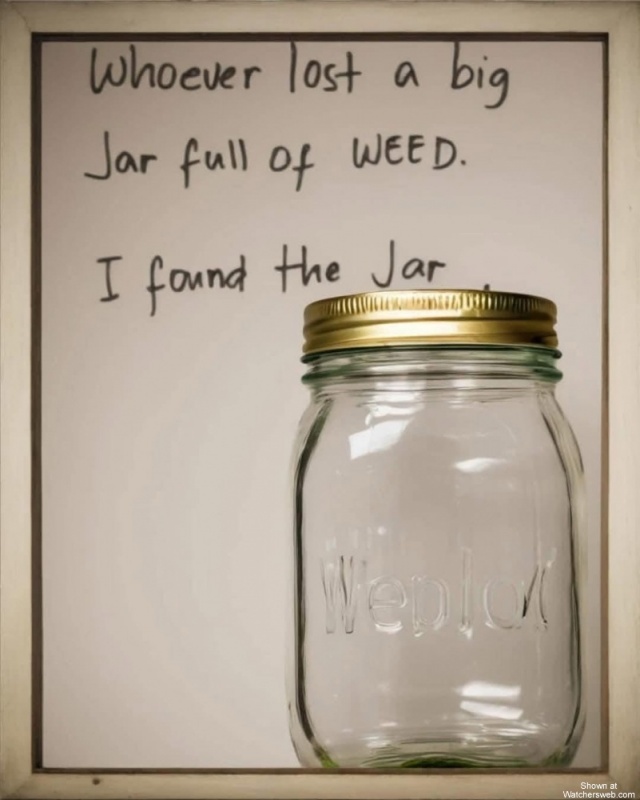 Whoever lost a big
Jar full of WEED.
I found the Jar
Shown at
Watchersweb.com